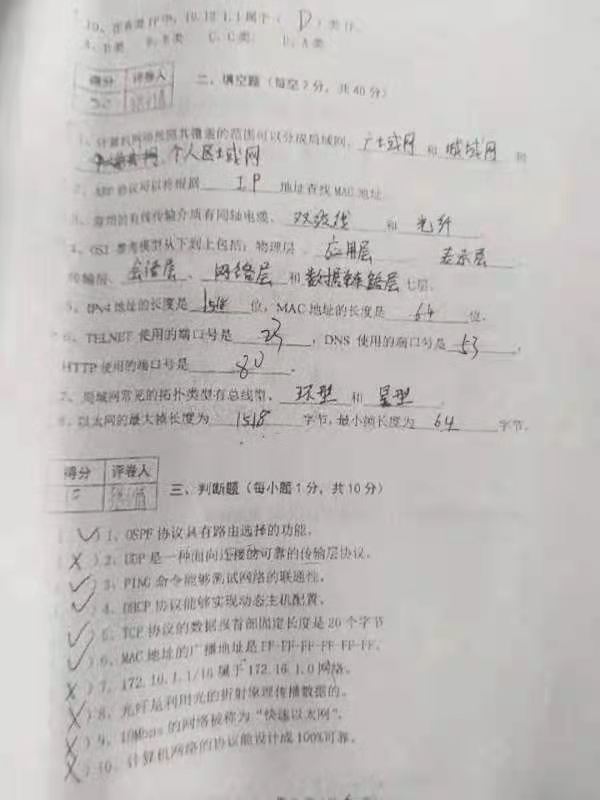 10、在各类IP中，10.12.1.1属于（ D ）类IP。
A、B类 B、E类 C、C类 D、A类
得分 评卷人
二、填空题（每空2分，共40分）
1、计算机网络按照其覆盖的范围可以分成局域网、广域网 和 城域网 和
个人区域网
2、ARP协议可以将根据 IP 地址查找MAC地址
3、常用的有线传输介质有同轴电缆、双绞线 和 光纤
4、OSI参考模型从下到上包括：物理层、应用层 表示层
传输层、会话层、网络层 和数据链路层七层。
5、IPv4地址的长度是 1518 位，MAC地址的长度是 64 位。
6、TELNET 使用的端口号是 23 ，DNS 使用的端口号是 53 ，
HTTP 使用的端口号是 80 。
7、局域网常见的拓扑类型有总线型、环型 和 星型
8、以太网的最大帧长度为 1518 字节，最小帧长度为 64 字节。
得分 评卷人
三、判断题（每小题1分，共10分）
（✓）1、OSPF 协议具有路由选择的功能。
（X）2、UDP 是一种面向连接的可靠的传输层协议。
（✓）3、PING 命令能够测试网络的联通性。
（✓）4、DHCP 协议能够实现动态主机配置。
（✓）5、TCP 协议的数据段首部固定长度是20个字节
（✓）6、MAC 地址的广播地址是 FF-FF-FF-FF-FF-FF。
（X）7、172.16.1.1/16 属于 172.16.1.0 网络。
（X）8、光纤是利用光的折射原理传播数据的。
（X）9、10Mbps 的网络被称为“快速以太网”。
（X）10、计算机网络的协议能设计成100%可靠。